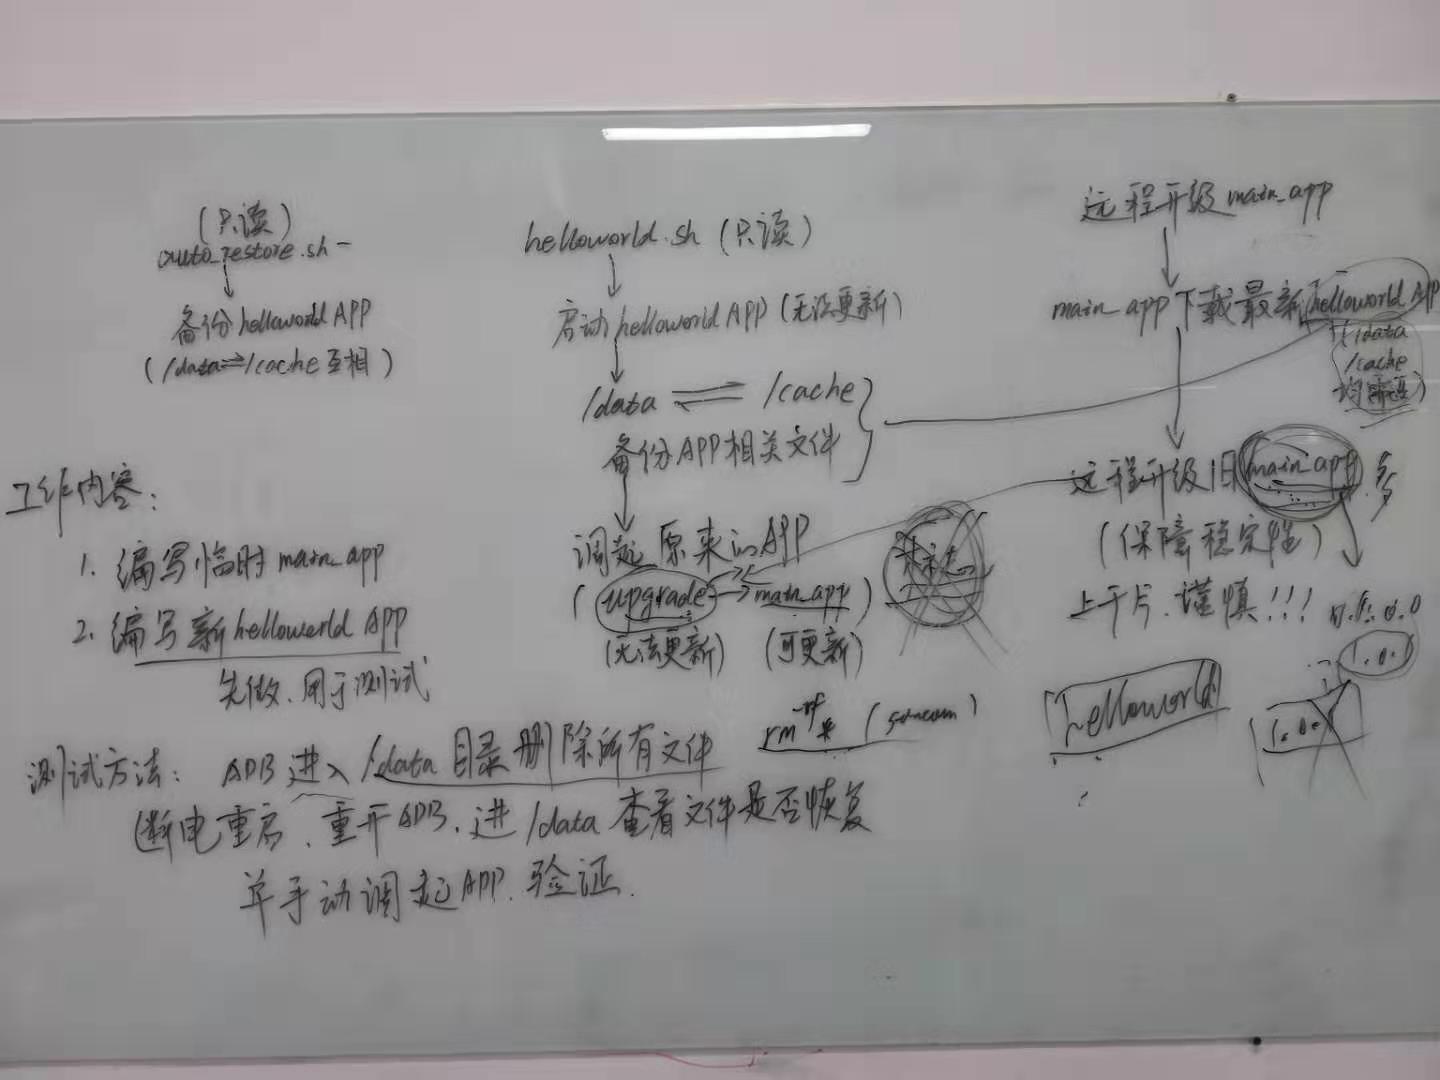 (只读)
auto_restore.sh
备份helloworld APP
(/data⇌/cache互相)
helloworld.sh (只读)
启动helloworld APP (无法更新)
/data ⇌ /cache
备份APP相关文件
调起原来的APP
(upgrade→main_app)
(无法更新) (可更新)
远程升级main_app
main_app下载最新helloworld APP
(/data
/cache
均需要)
远程升级旧main_app
(保障稳定性)
上千片、谨慎!!!
1.0.1
helloworld
rm -rf *
工作内容:
1. 编写临时main_app
2. 编写新helloworld APP
先做、用于测试
测试方法: ADB进入/data目录删除所有文件
断电重启、重开ADB、进/data查看文件是否恢复
并手动调起APP、验证.